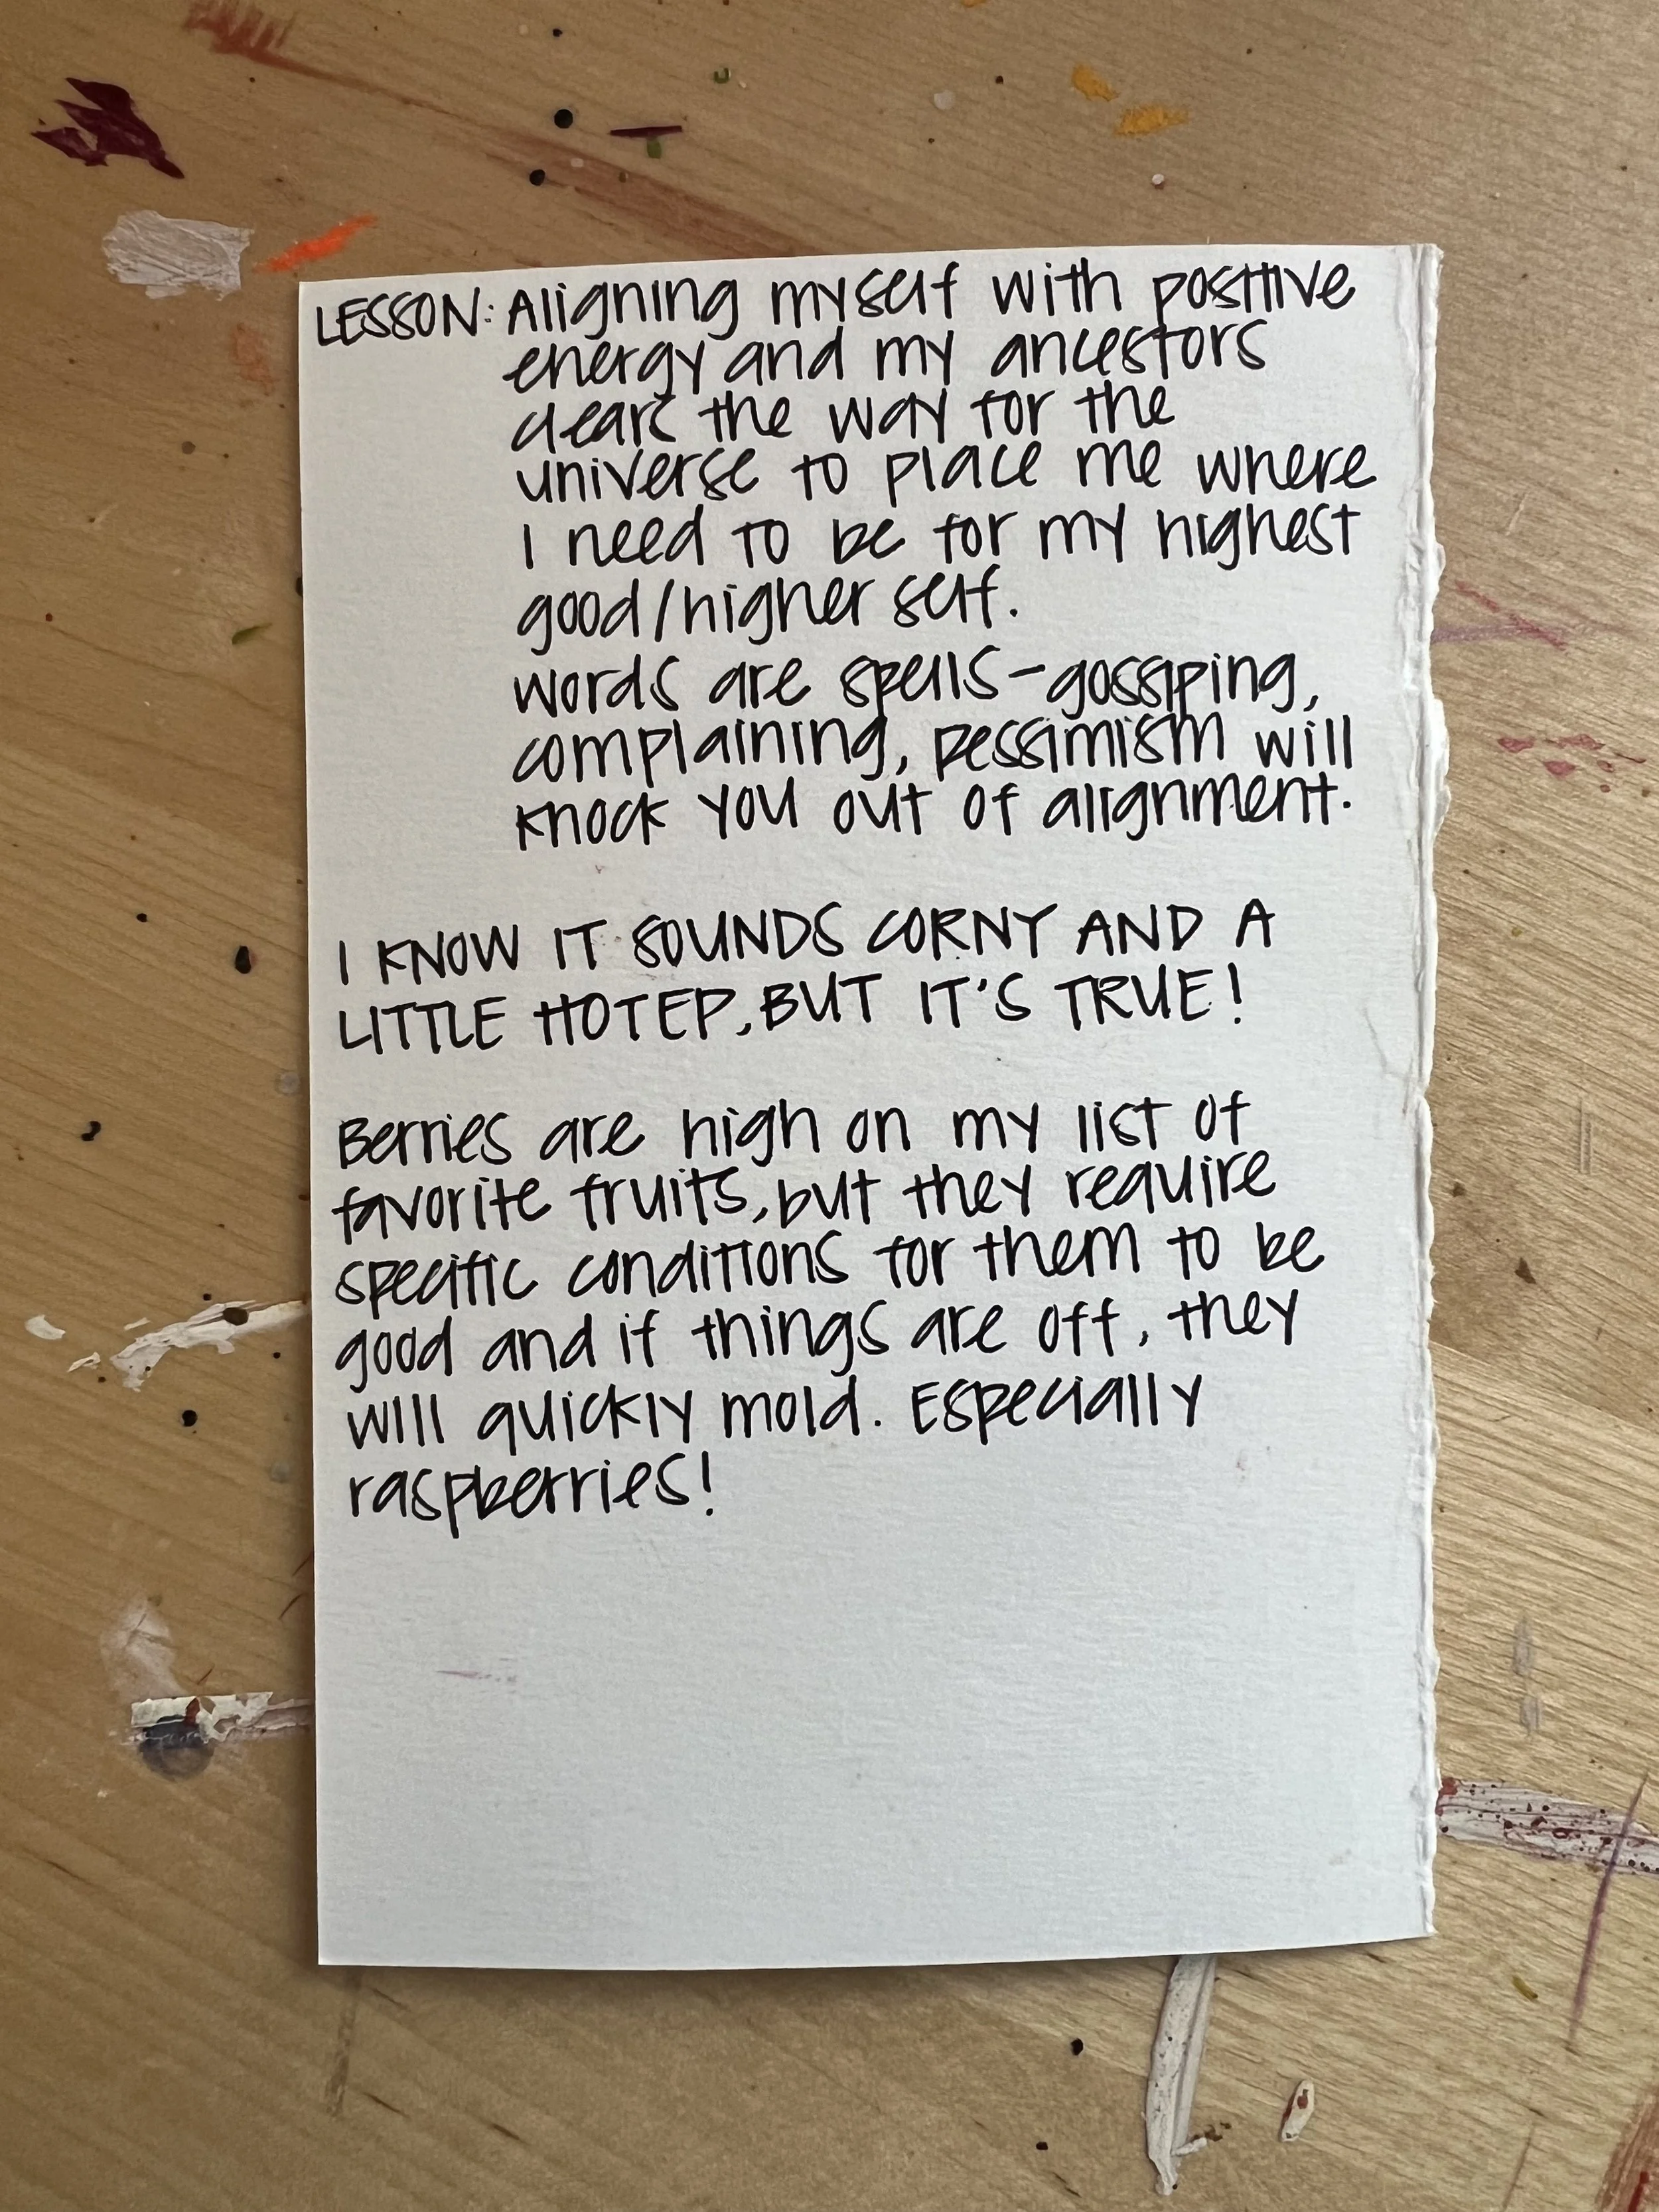 LESSON: Aligning myself with positive
energy and my ancestors
clears the way for the
universe to place me where
I need to be for my highest
good/higher self.
words are spells-gossiping,
complaining, pessimism will
knock you out of alignment.
I KNOW IT SOUNDS CORNY AND A
LITTLE HOTEP, BUT IT'S TRUE!
Berries are high on my list of
favorite fruits, but they require
specific conditions for them to be
good and if things are off, they
will quickly mold. Especially
raspberries!